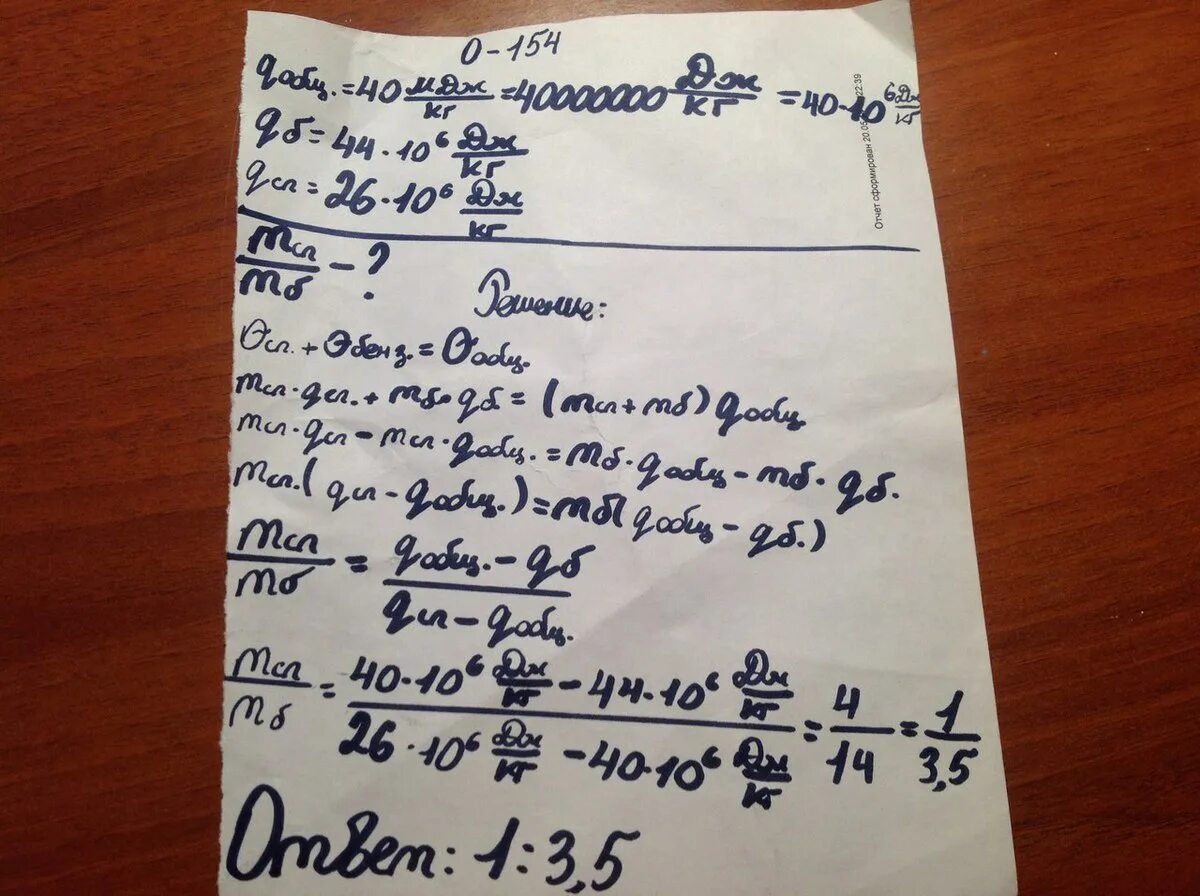 О-154
qобщ. = 40 МДж/кг = 40000000 Дж/кг = 40·10⁶ Дж/кг
qб = 44·10⁶ Дж/кг
qсп = 26·10⁶ Дж/кг
mсп/mб - ?
Решение:
Qсп. + Qбенз. = Qобщ.
mсп·qсп. + mб·qб = (mсп + mб) qобщ
mсп·qсп - mсп·qобщ. = mб·qобщ - mб·qб.
mсп.(qсп - qобщ.) = mб(qобщ - qб.)
mсп/mб = (qобщ. - qб)/(qсп - qобщ.)
mсп/mб = (40·10⁶ Дж/кг - 44·10⁶ Дж/кг)/(26·10⁶ Дж/кг - 40·10⁶ Дж/кг) = 4/14 = 1/3,5
Ответ: 1:3,5
Отчет сформирован 20.05 22:39